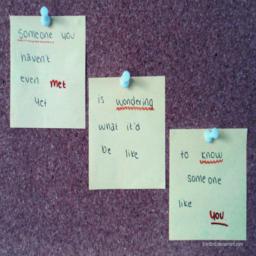 someone you
haven't
even met
yet
is wondering
what it'd
be like
to know
someone
like
you